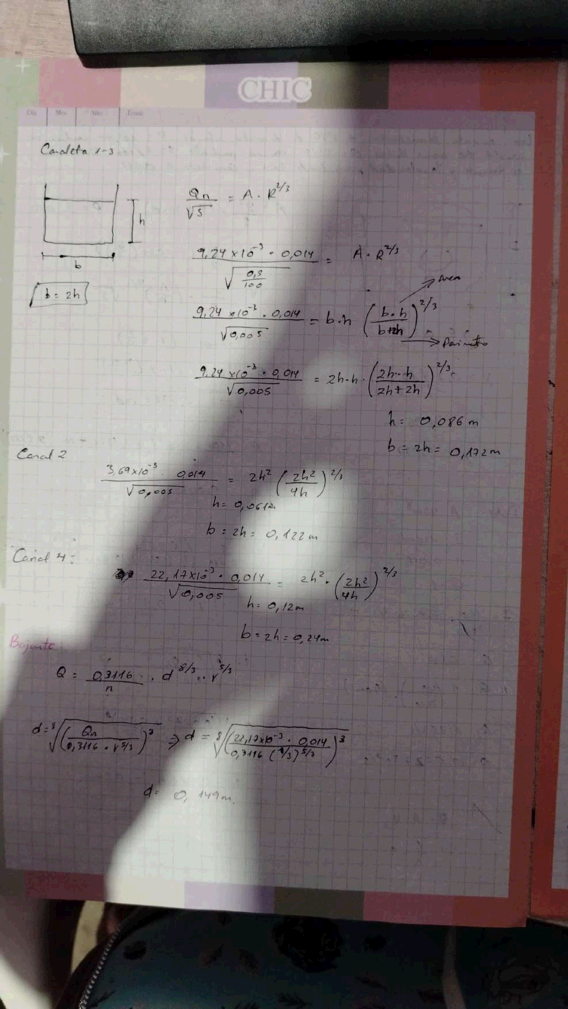 CHIC
Canaleta 1-3
Qn/√S = A · R^2/3
h
b
b = 2h
9,24 x10^-3 · 0,014 / √(0,5/100) = A · R^2/3
Area
9,24 x10^-3 · 0,014 / √0,005 = b·h (b·h / b+2h)^2/3
9,24 x10^-3 · 0,014 / √0,005 = 2h·h · (2h·h / 2h+2h)^2/3
h = 0,086 m
b = 2h = 0,172 m
Canal 2
3,69x10^-3 · 0,014 / √0,005 = 2h² (2h²/4h)^2/3
b = 2h = 0,122 m
Canal 4:
22,17x10^-3 · 0,014 / √0,005 = 2h² · (2h²/4h)^2/3
h = 0,12m
b = 2h = 0,24m
Q = 0,3116/n · d^8/3 ·
d = ⁸√(Qn / 0,3116 · )³ ⇒ d = ⁸√(22,17x10^-3 · 0,014 / 0,3116 )³
d = 0,149 m.